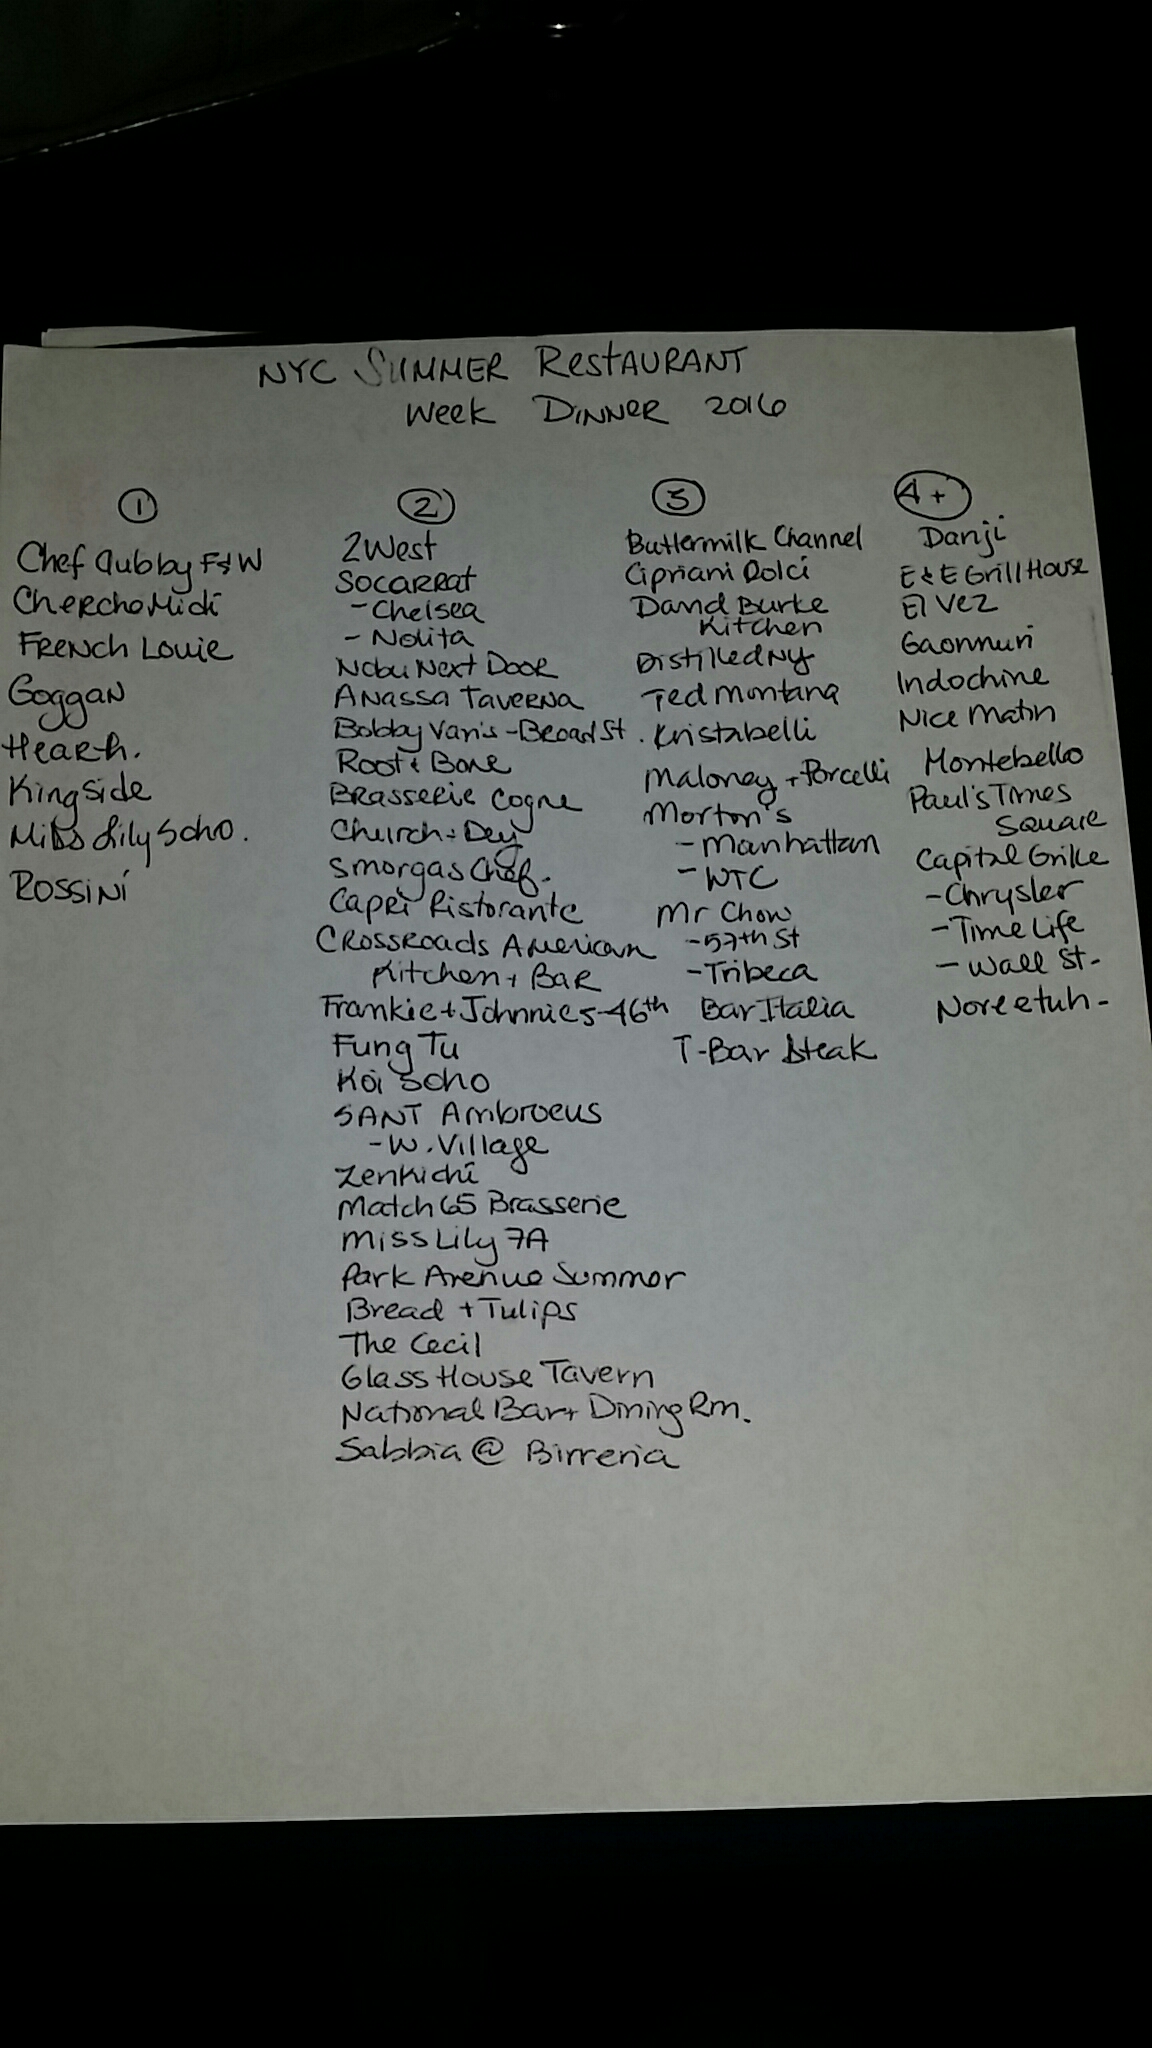 NYC SUMMER RESTAURANT
Week DINNER 2016
1
Chef Club by F&W
Cherche Midi
FRENCH LOUIE
Goggan
Hearth.
Kingside
Miss Lily Soho.
ROSSINI
2
2West
SOCARRAT
- Chelsea
- Nolita
Nobu Next Door
ANASSA TAVERNA
Bobby Van's - Broad St.
Root & Bone
BRASSERIE Cogne
Church + Dey
Smorgas Chef.
CAPRI Ristorante
CROSSROADS AMERICAN
Kitchen + BAR
Frankie + Johnnies - 46th
Fung Tu
Koi Soho
SANT Ambroeus
- W. Village
Zenkichi
Match 65 Brasserie
Miss Lily 7A
Park Avenue Summer
Bread + Tulips
The Cecil
Glass House Tavern
National Bar + Dining Rm.
Sabbia @ Birreria
3
Buttermilk Channel
Cipriani Dolci
David Burke
Kitchen
Distilled NY
Ted Montana
Kristabelli
Maloney + Porcelli
Morton's
- Manhattan
- WTC
Mr Chow
- 57th St
- Tribeca
Bar Italia
T-Bar Steak
4+
Danji
E & E Grill House
El Vez
Gaonnuri
Indochine
Nice Matin
Montebello
Paul's Times
Square
Capital Grille
- Chrysler
- Time Life
- Wall St -
Noreetuh -